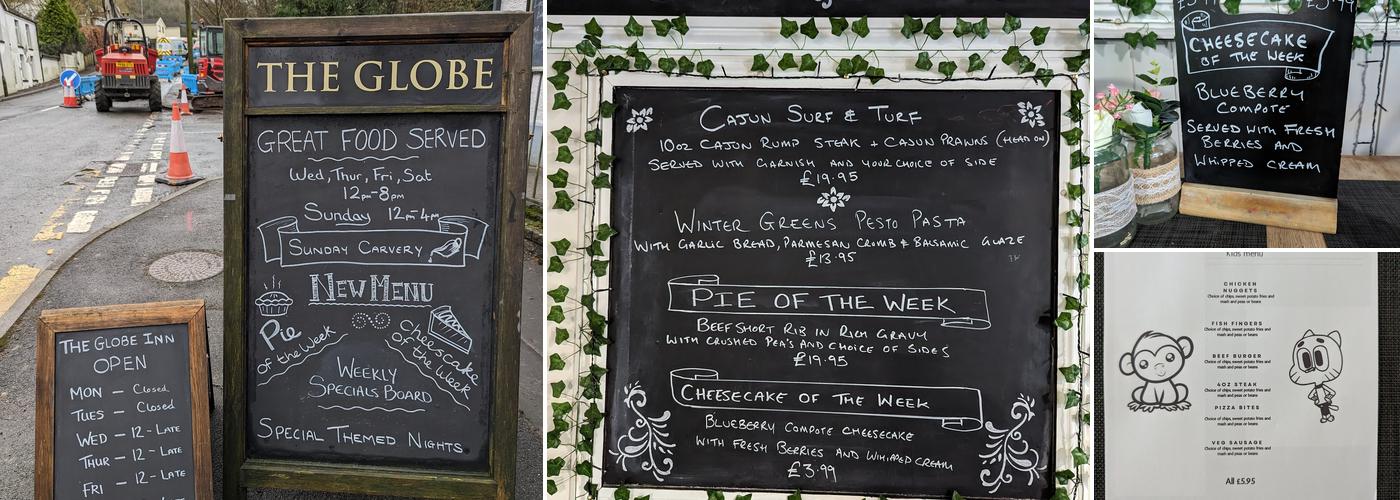 THE GLOBE
GREAT FOOD SERVED
Wed, Thur, Fri, Sat
12pm-8pm
Sunday 12pm-4pm
SUNDAY CARVERY
NEW MENU
Pie
of the Week
Cheesecake
of the Week
WEEKLY
SPECIALS BOARD
SPECIAL THEMED NIGHTS
THE GLOBE INN
OPEN
MON - Closed
TUES - Closed
WED - 12 - LATE
THUR - 12 - LATE
FRI - 12 - LATE
CAJUN SURF & TURF
10oz CAJUN RUMP STEAK + CAJUN PRAWNS (HEAD ON)
SERVED WITH GARNISH AND YOUR CHOICE OF SIDE
£19.95
WINTER GREENS PESTO PASTA
WITH GARLIC BREAD, PARMESAN CRUMB & BALSAMIC GLAZE
£13.95
PIE OF THE WEEK
BEEF SHORT RIB IN RICH GRAVY
WITH CRUSHED PEA'S AND CHOICE OF SIDES
£19.95
CHEESECAKE OF THE WEEK
BLUEBERRY COMPOTE CHEESECAKE
WITH FRESH BERRIES AND WHIPPED CREAM
£3.99
CHEESECAKE
OF THE WEEK
BLUEBERRY
COMPOTE
SERVED WITH FRESH
BERRIES AND
WHIPPED CREAM
Kids menu
CHICKEN
NUGGETS
Choice of chips, sweet potato fries and
mash and peas or beans
FISH FINGERS
Choice of chips, sweet potato fries and
mash and peas or beans
BEEF BURGER
Choice of chips, sweet potato fries and
mash and peas or beans
4OZ STEAK
Choice of chips, sweet potato fries and
mash and peas or beans
PIZZA BITES
Choice of chips, sweet potato fries and
mash and peas or beans
VEG SAUSAGE
Choice of chips, sweet potato fries and
mash and peas or beans
All £5.95